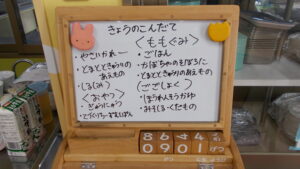 きょうのこんだて
・やさいかれー
・とまときゅうりの
あえもの
・しるみ
〈おやつ〉
・ぎゅうにゅう
〈ももぐみ〉
・ごはん
・かぼちゃのそぼろに
・とまときゅうりのあえもの
〈ごごしょく〉
・ほうれんそうがゆ
・みそしる・くだもの
8 6 4 4
0 9 0 1